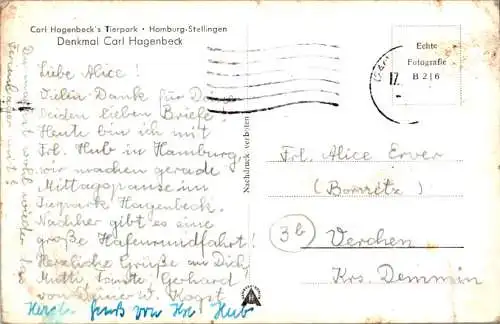 Carl Hagenbeck's Tierpark • Hamburg-Stellingen
Denkmal Carl Hagenbeck
Liebe Alice!
Vielen Dank für Deine
beiden lieben Briefe!
Heute bin ich mit
Frl. Hub in Hamburg,
wir machen gerade
Mittagspause im
Tierpark Hagenbeck.
Nachher gibt es eine
große Hafenrundfahrt!
Herzliche Grüße an Dich,
Mutti, Tante, Gerhard
von Deiner
Herzl. Gruß von Frl. Hub
Du machst wohl wieder
Nachdruck verboten
Echte
Fotografie
B 216
17.
Frl. Alice Erver
(Borritz)
3b
Verchen
Krs. Demmin